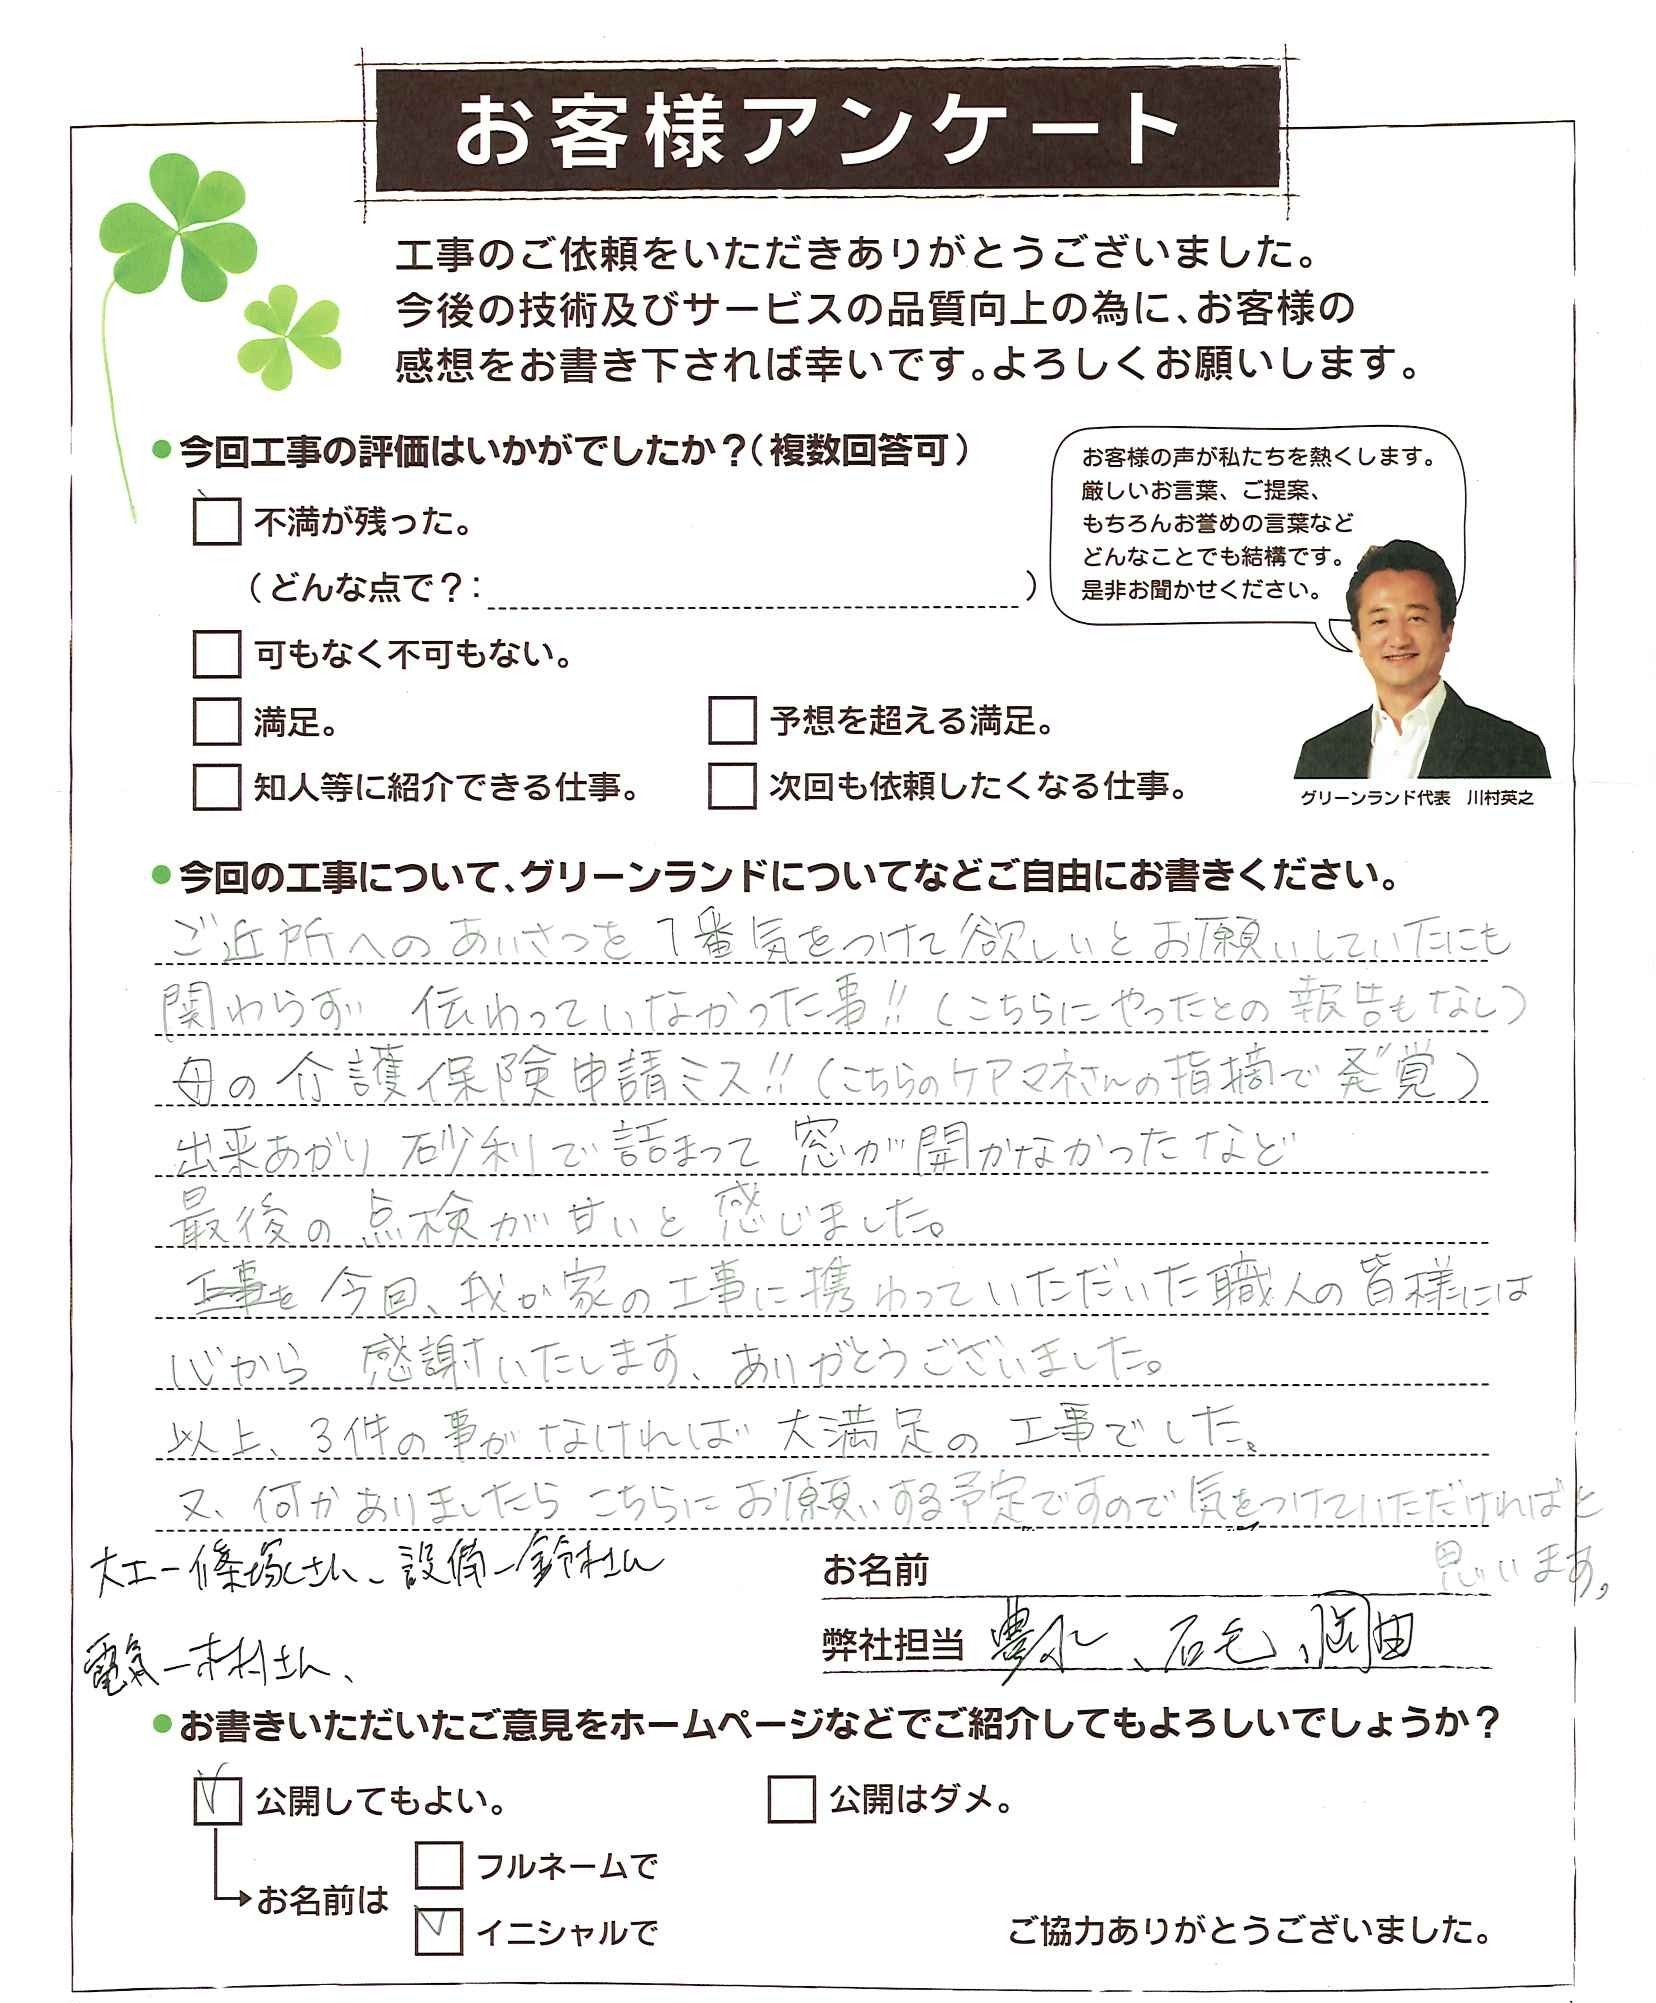 お客様アンケート
工事のご依頼をいただきありがとうございました。
今後の技術及びサービスの品質向上の為に、お客様の
感想をお書き下されば幸いです。よろしくお願いします。
●今回工事の評価はいかがでしたか?(複数回答可)
不満が残った。
(どんな点で?: )
可もなく不可もない。
満足。
予想を超える満足。
知人等に紹介できる仕事。
次回も依頼したくなる仕事。
お客様の声が私たちを熱くします。
厳しいお言葉、ご提案、
もちろんお誉めの言葉など
どんなことでも結構です。
是非お聞かせください。
グリーンランド代表 川村英之
●今回の工事について、グリーンランドについてなどご自由にお書きください。
ご近所へのあいさつを1番気をつけて欲しいとお願いしていたにも
関わらず 伝わっていなかった事!!(こちらにやったとの報告もなし)
母の介護保険申請ミス!!(こちらのケアマネさんの指摘で発覚)
出来あがり 砂利で詰まって 窓が開かなかったなど
最後の点検が甘いと感じました。
工事を 今回、我が家の工事に携わっていただいた職人の皆様には
心から 感謝いたします、ありがとうございました。
以上、3件の事がなければ 大満足の工事でした。
又、何かありましたら こちらにお願いする予定ですので気をつけていただければと
思います。
大工ー篠塚さん、設備ー鈴村さん
電気ー木村さん、
お名前
弊社担当 豊永、石毛、
●お書きいただいたご意見をホームページなどでご紹介してもよろしいでしょうか?
公開してもよい。
公開はダメ。
お名前は
フルネームで
イニシャルで
ご協力ありがとうございました。